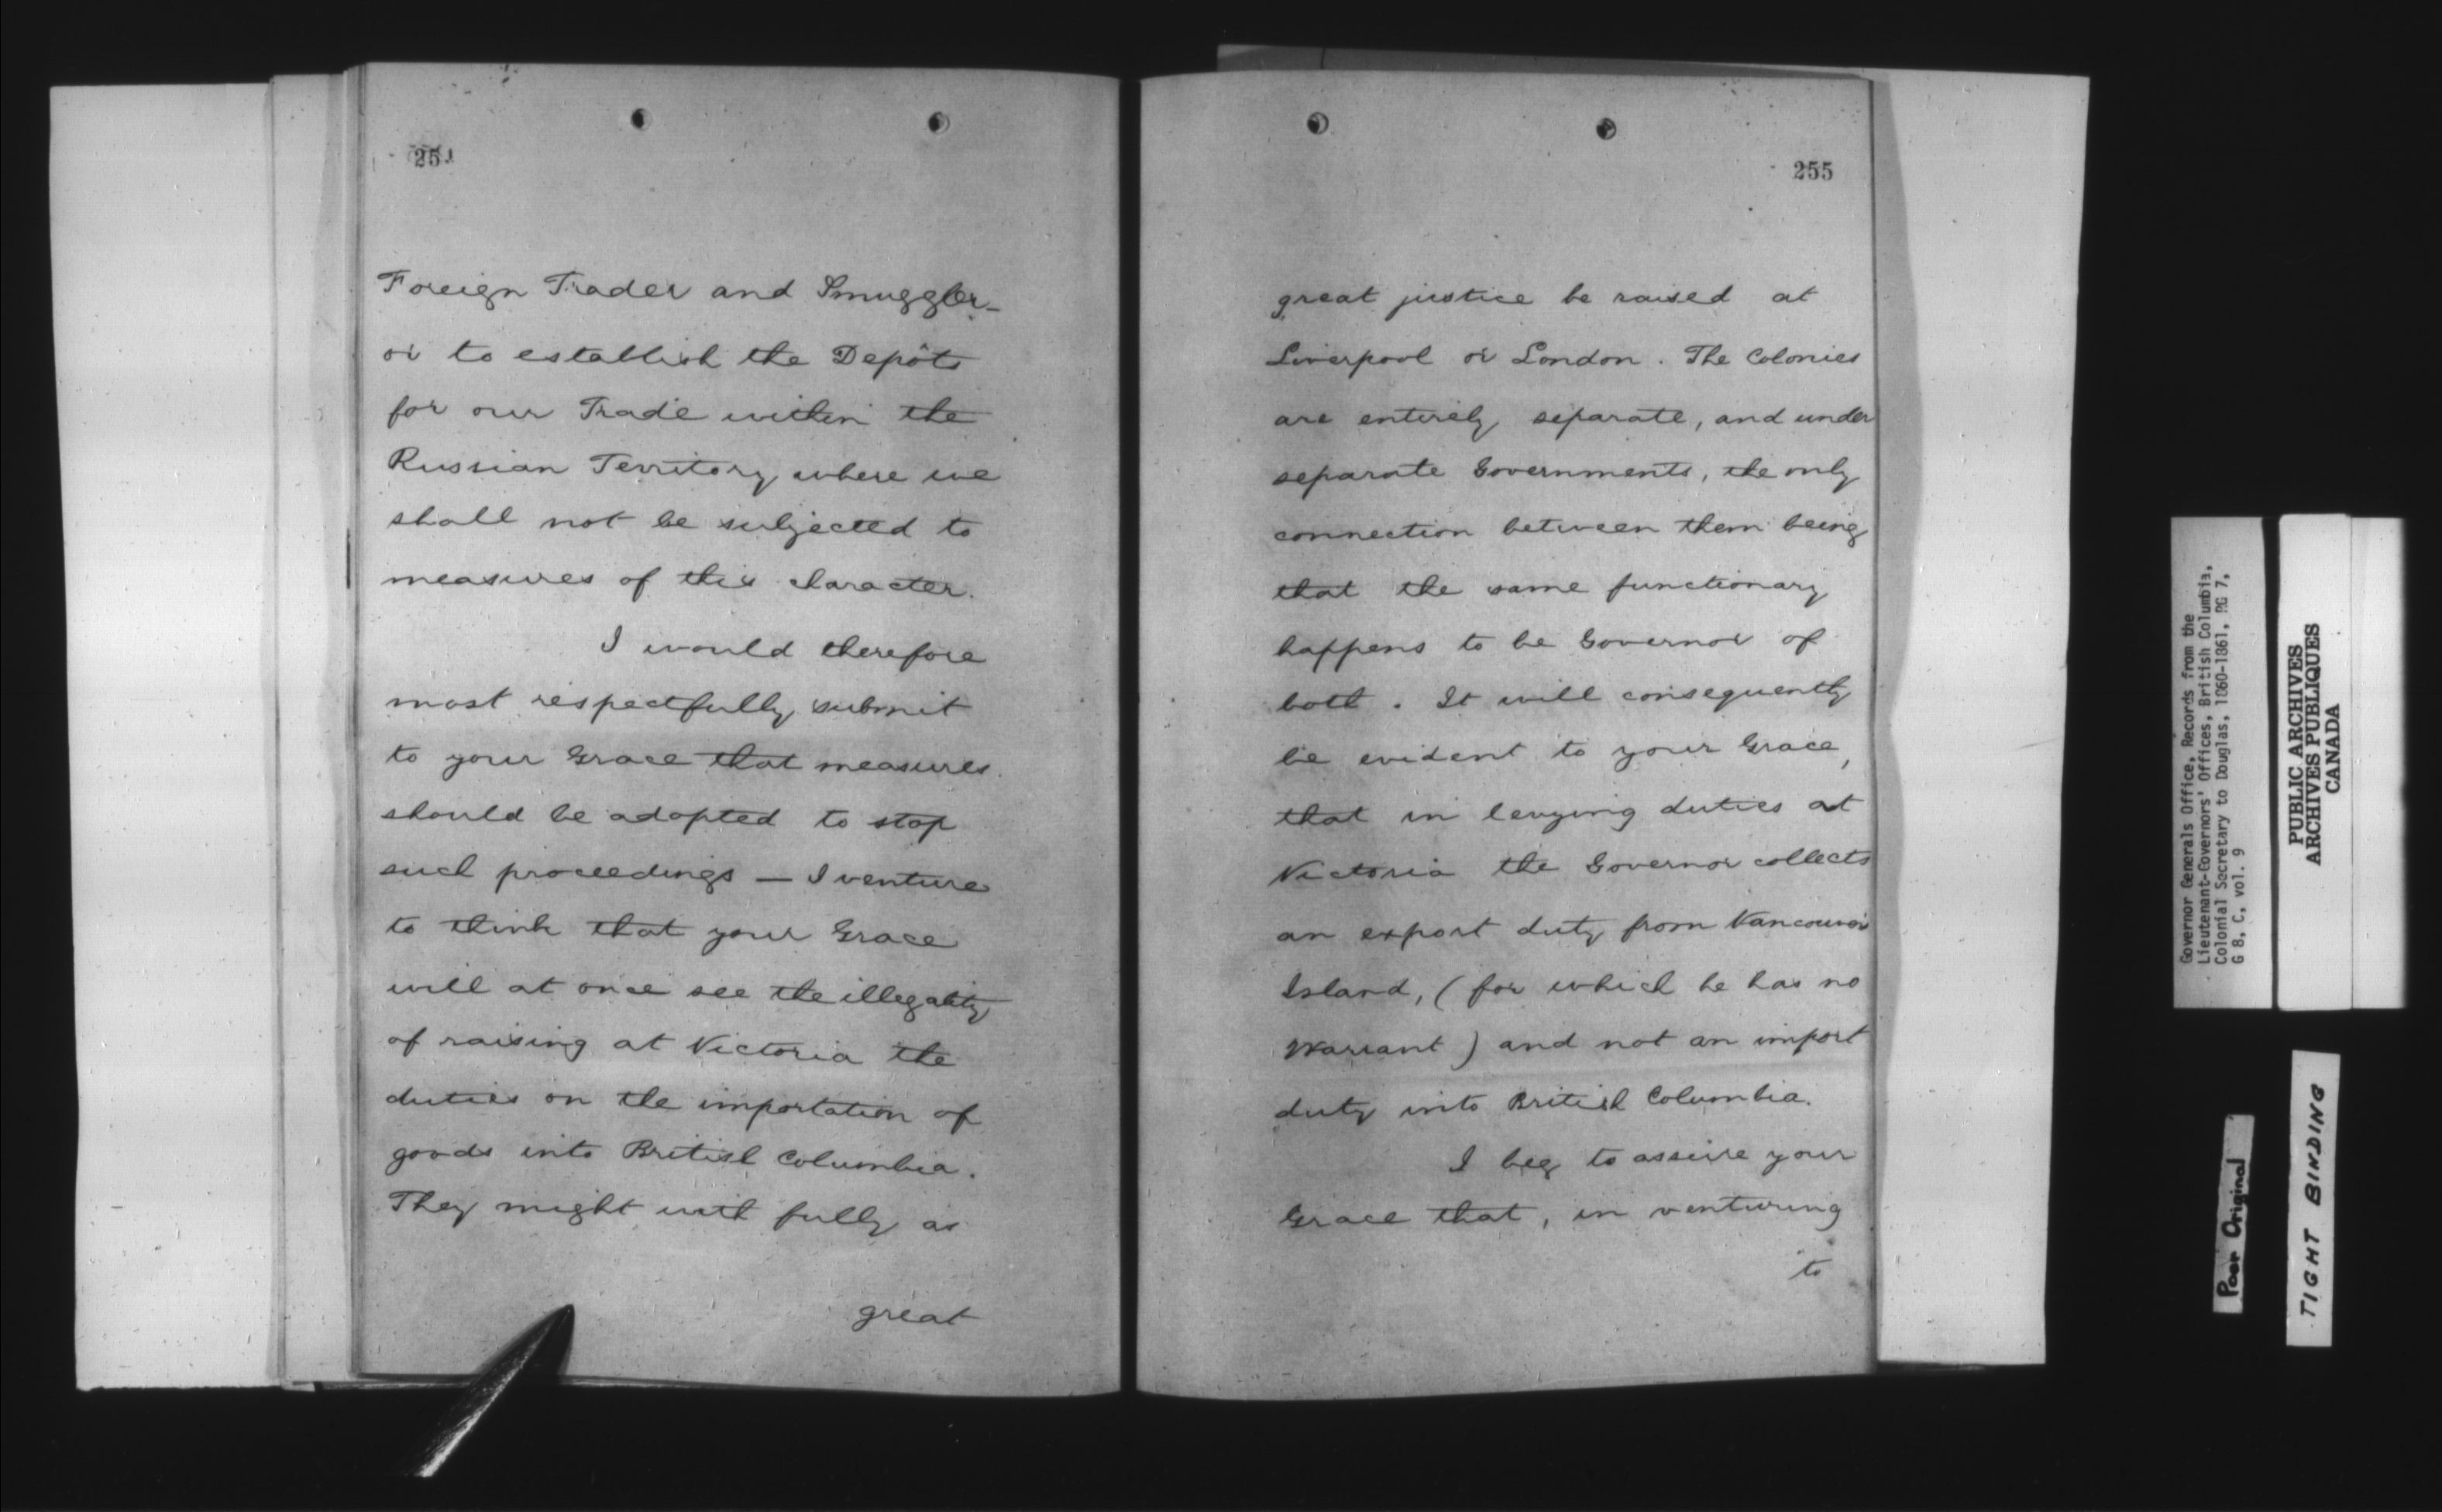 254
Foreign Trader and Smuggler–
or to establish the Depôts
for our Trade within the
Russian Territory where we
shall not be subjected to
measures of this character.
I would therefore
most respectfully submit
to your Grace that measures
should be adopted to stop
such proceedings — I venture
to think that your Grace
will at once see the illegality
of raising at Victoria the
duties on the importation of
goods into British Columbia.
They might with fully as
great
255
great justice be raised at
Liverpool or London. The Colonies
are entirely separate, and under
separate Governments, the only
connection between them being
that the same functionary
happens to be Governor of
both. It will consequently
be evident to your Grace,
that in levying duties at
Victoria the Governor collects
an export duty from Vancouver
Island, (for which he has no
Warrant) and not an import
duty into British Columbia.
I beg to assure your
Grace that, in venturing
to
Governor Generals Office, Records from the
Lieutenant-Governors' Offices, British Columbia,
Colonial Secretary to Douglas, 1860-1861, RG 7,
G 8, C, vol. 9
PUBLIC ARCHIVES
ARCHIVES PUBLIQUES
CANADA
Poor Original
TIGHT BINDING